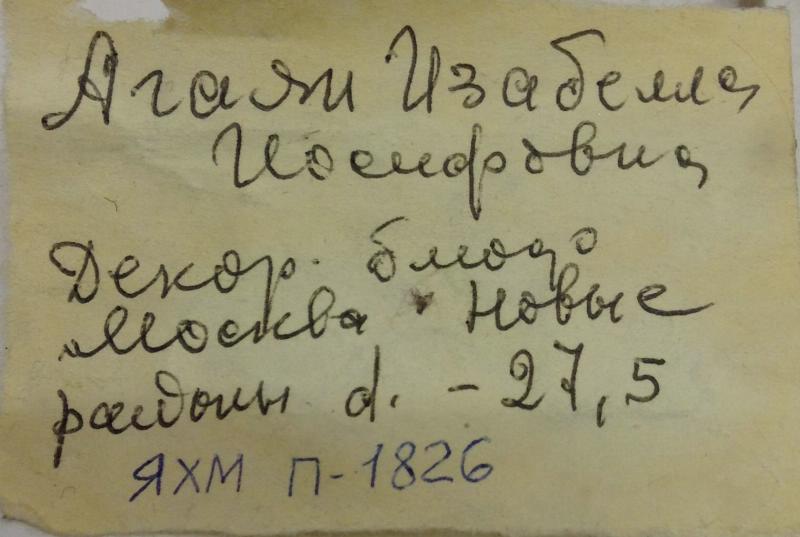 Агаян Изабелла
Иосифовна
Декор. блюдо
„Москва. Новые
районы d. - 27,5
ЯХМ П-1826